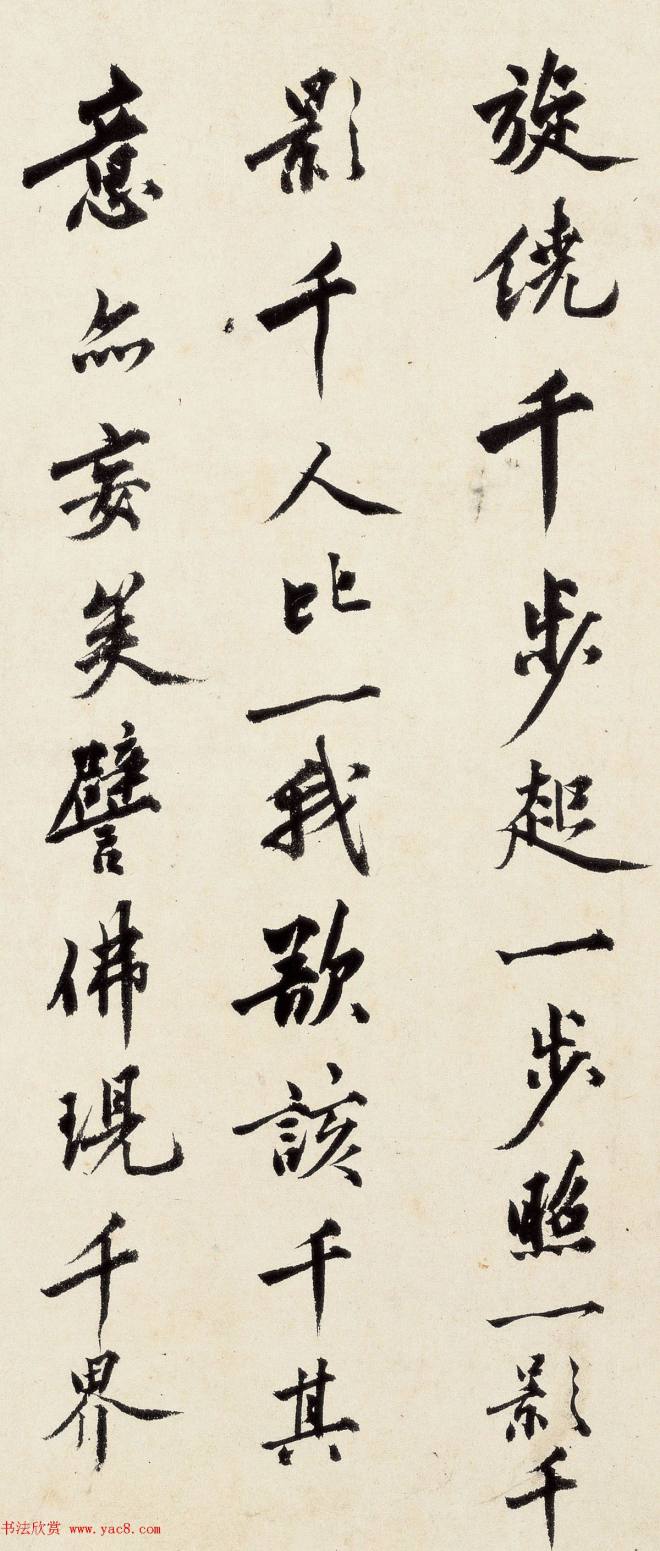 旋繞千步起一步照一影千
影千人比一我欲該千其
意亦妄矣譬佛現千界
书法欣赏 www.yac8.com